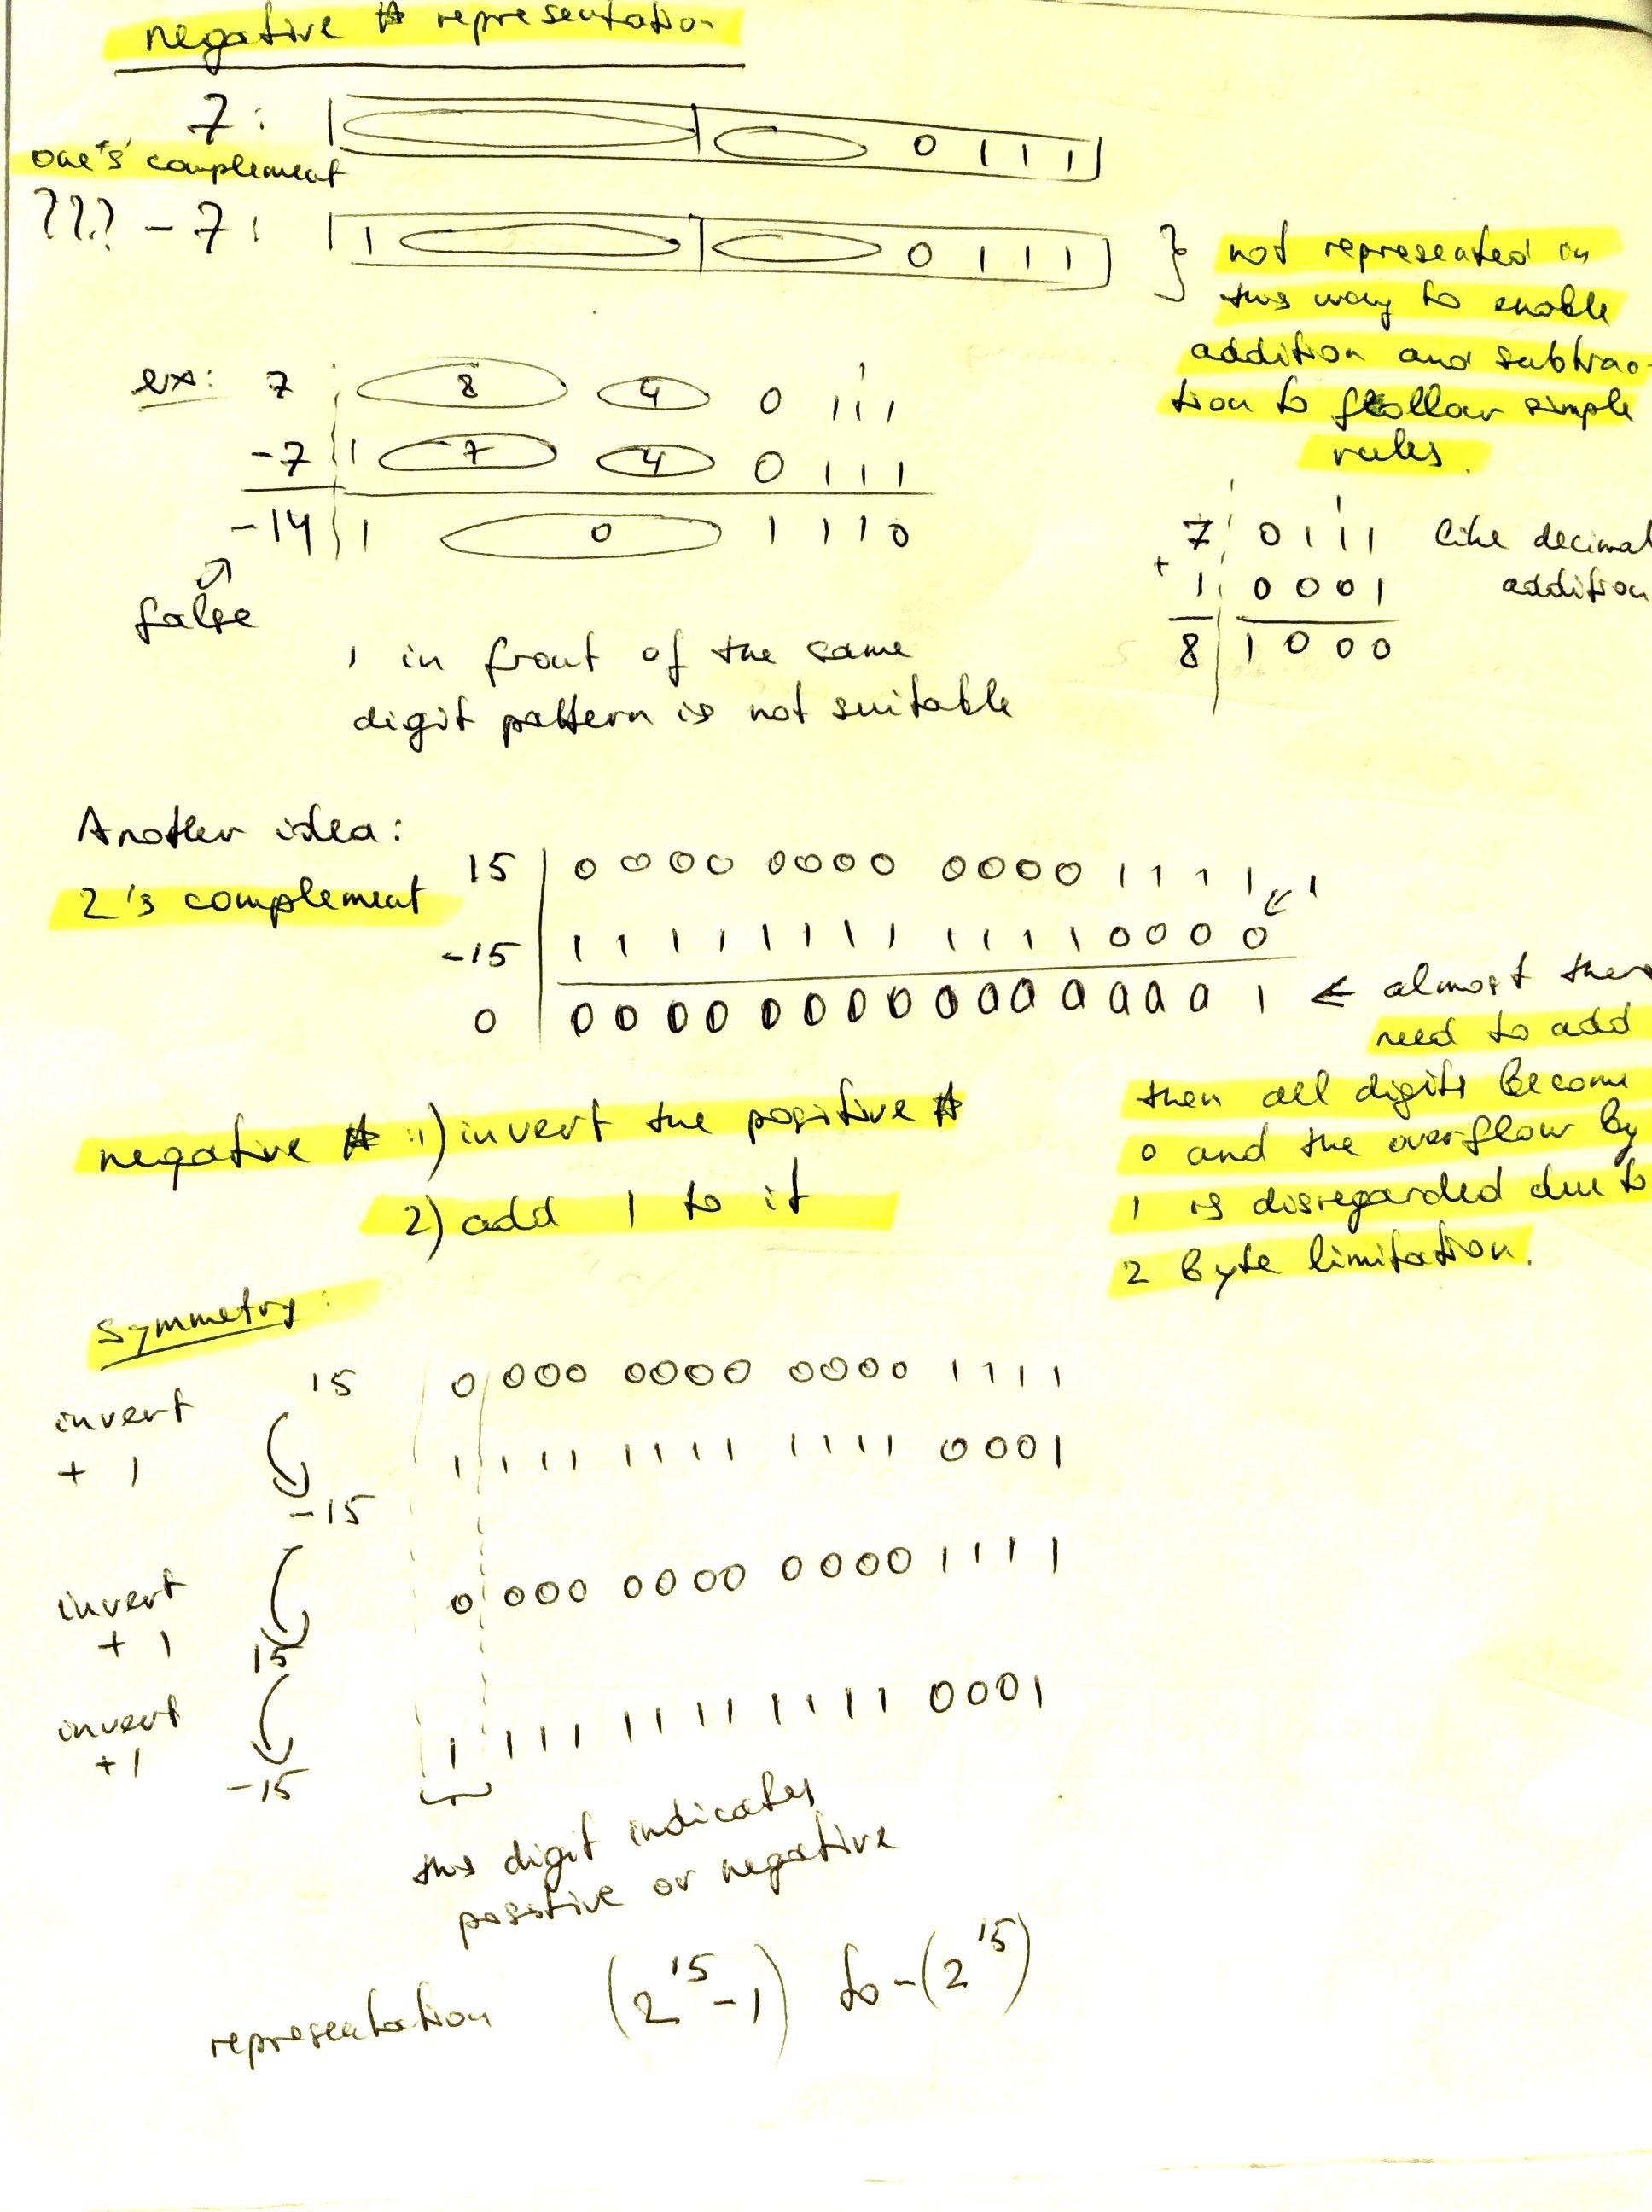 negative # representation
7: 0 1 1 1
one's complement
??? -7: 1 0 1 1 1
} not represented in
this way to enable
addition and subtrac-
tion to follow simple
rules.
ex: 7 8 4 0 1 1 1
-7 1 7 4 0 1 1 1
-14 1 0 1 1 1 0
false
1 in front of the same
digit pattern is not suitable
7 0 1 1 1 like decimal
+ 1 0 0 0 1 addition
8 1 0 0 0
Another idea:
2's complement
15 0 0 0 0 0 0 0 0 0 0 0 0 1 1 1 1 1
-15 1 1 1 1 1 1 1 1 1 1 1 1 0 0 0 0
0 0 0 0 0 0 0 0 0 0 0 0 0 0 0 0 1 ← almost there
need to add
then all digits become
0 and the overflow by
1 is disregarded due to
2 byte limitation.
negative # :1) invert the positive #
2) add 1 to it
Symmetry:
15 0 000 0000 0000 1111
invert
+ 1
-15 1 111 1111 1111 0001
invert
+ 1
15 0 000 0000 0000 1111
invert
+1
-15 1 111 1111 1111 0001
this digit indicates
positive or negative
representation (2^15 - 1) to -(2^15)